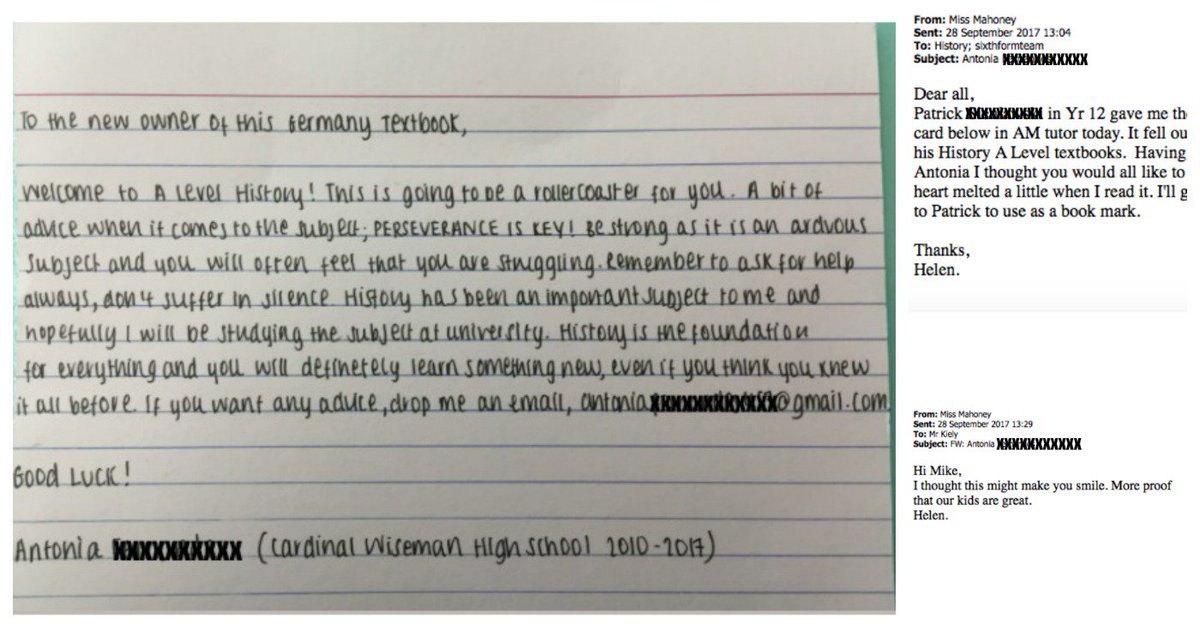 To the new owner of this Germany Textbook,
Welcome to A Level History! This is going to be a rollercoaster for you. A bit of
advice when it comes to the subject; PERSEVERANCE IS KEY! Be strong as it is an arduous
subject and you will often feel that you are struggling. Remember to ask for help
always, don't suffer in silence. History has been an important subject to me and
hopefully I will be studying the subject at university. History is the foundation
for everything and you will definetely learn something new, even if you think you knew
it all before. If you want any advice, drop me an email, antonia @gmail.com
Good Luck!
Antonia (Cardinal Wiseman High School 2010-2017)
From: Miss Mahoney
Sent: 28 September 2017 13:04
To: History; sixthformteam
Subject: Antonia
Dear all,
Patrick in Yr 12 gave me the
card below in AM tutor today. It fell ou
his History A Level textbooks. Having
Antonia I thought you would all like to
heart melted a little when I read it. I'll g
to Patrick to use as a book mark.
Thanks,
Helen.
From: Miss Mahoney
Sent: 28 September 2017 13:29
To: Mr Kiely
Subject: FW: Antonia
Hi Mike,
I thought this might make you smile. More proof
that our kids are great.
Helen.